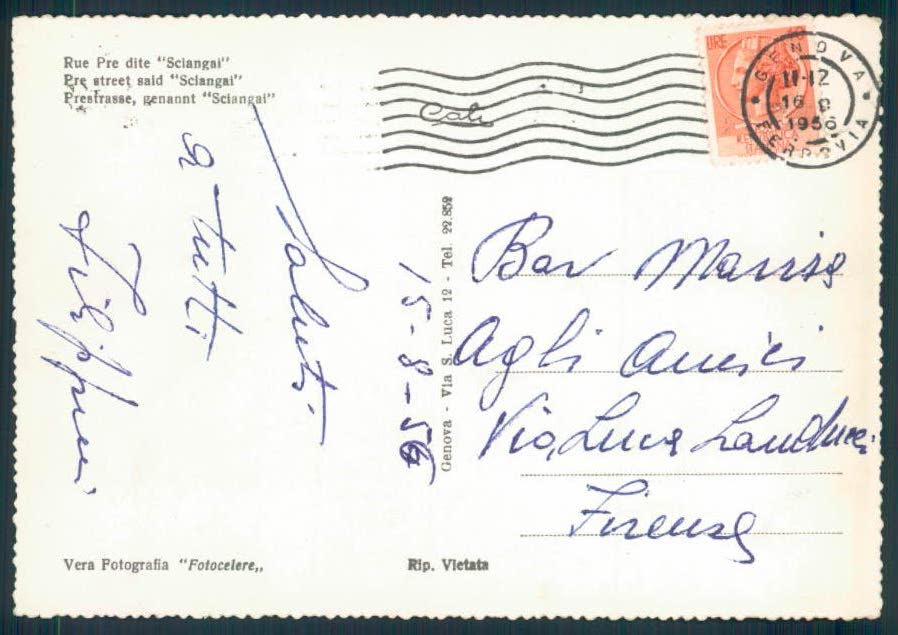 Rue Pre dite "Sciangai"
Pre street said "Sciangai"
Prestrasse, genannt "Sciangai"
Saluti
a tutti
Filippini
15-8-56
Genova - Via S. Luca 12 - Tel. 22.852
LIRE
GENOVA
11-12
16 8
1956
FERROVIA
Bar Marisa
Agli Amici
Via, Luca Landucci
Firenze
Vera Fotografia "Fotocelere„
Rip. Vietata